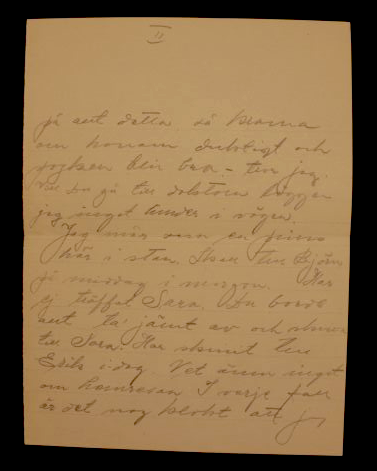 II
på allt detta så krama
om honom duktigt och
pojken blir bra - tror jag.
Vill du gå till doktorn lägger
jag inget hinder i vägen.
Jag mår bra
här i stan. Skall till Björn
på middag i morgon. Har
ej träffat Sara. Du borde
allt ta' jämt av och skriva
till Sara. Har skrivit till
Eriks idag. Vet ännu inget
om hemresan. I varje fall
är det nog klokt att jag